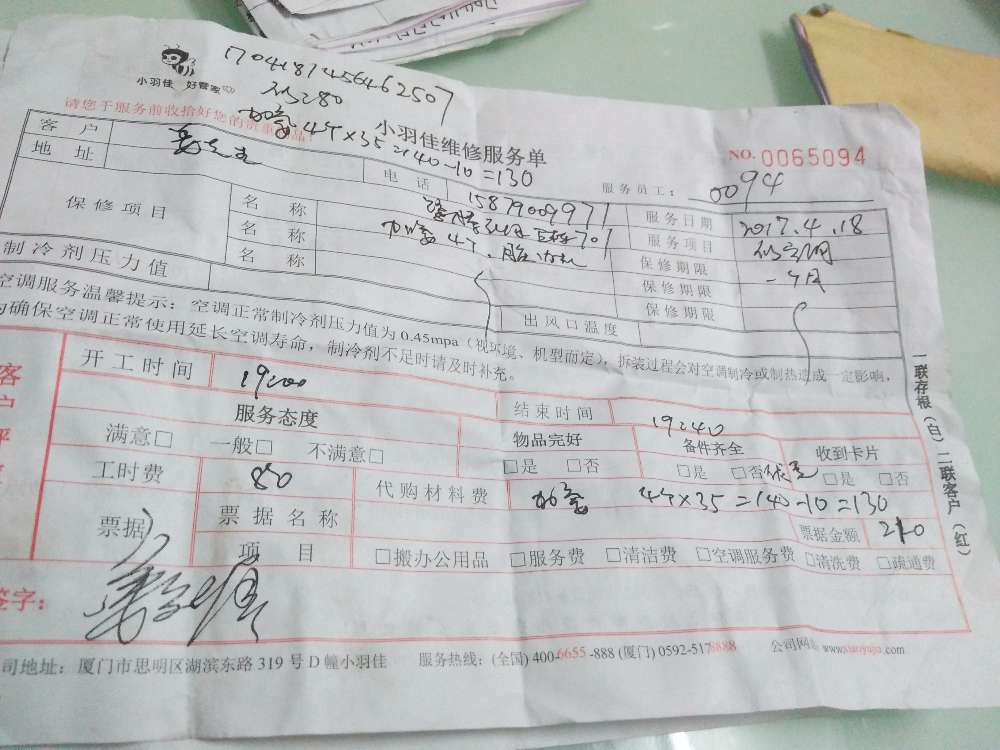 17041874564462507
小羽佳 好管家
请您于服务前收拾好您的贵重物品!
加氟 4个×35=140-10=130
小羽佳维修服务单
NO. 0065094
客 户
电 话 1587900997
服务员工: 0094
地 址
服务日期 2017.4.18
保修项目 名 称
服务项目
名 称 加氟 4个
保修期限 一个月
名 称
保修期限
制冷剂压力值
出风口温度
保修期限
空调服务温馨提示:空调正常制冷剂压力值为0.45mpa(视环境、机型而定),拆装过程会对空调制冷或制热造成一定影响,
为确保空调正常使用延长空调寿命,制冷剂不足时请及时补充。
开工时间 19:00
结束时间 19:40
服务态度
物品完好
备件齐全
收到卡片
满意□ 一般□ 不满意□
□是 □否
□是 □否
□是 □否
工时费 80
代购材料费 加氟 4个×35=140-10=130
票据
票据名称
票据金额 210
项 目
□搬办公用品 □服务费 □清洁费 □空调服务费 □清洗费 □疏通费
签字:
司地址:厦门市思明区湖滨东路 319 号 D 幢小羽佳
服务热线:(全国) 400-6655-888 (厦门) 0592-5178888
公司网址 www.xiaoyujia.com
一联存根(白)二联客户(红)